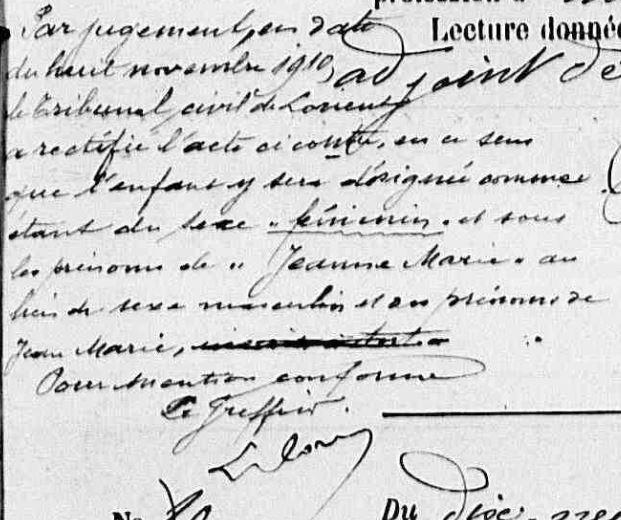 Lecture donnée
Par jugement, en date
du huit novembre 1910,
adjoint de
le Tribunal civil de Lorient
a rectifié l'acte ci contre, en ce sens
que l'enfant y sera désignée comme
étant du sexe " féminin " et sous
les prénoms de " Jeanne Marie " au
lieu de sexe masculin et au prénoms de
Jean Marie,
Pour mention conforme
Le Greffier.
Du dix-